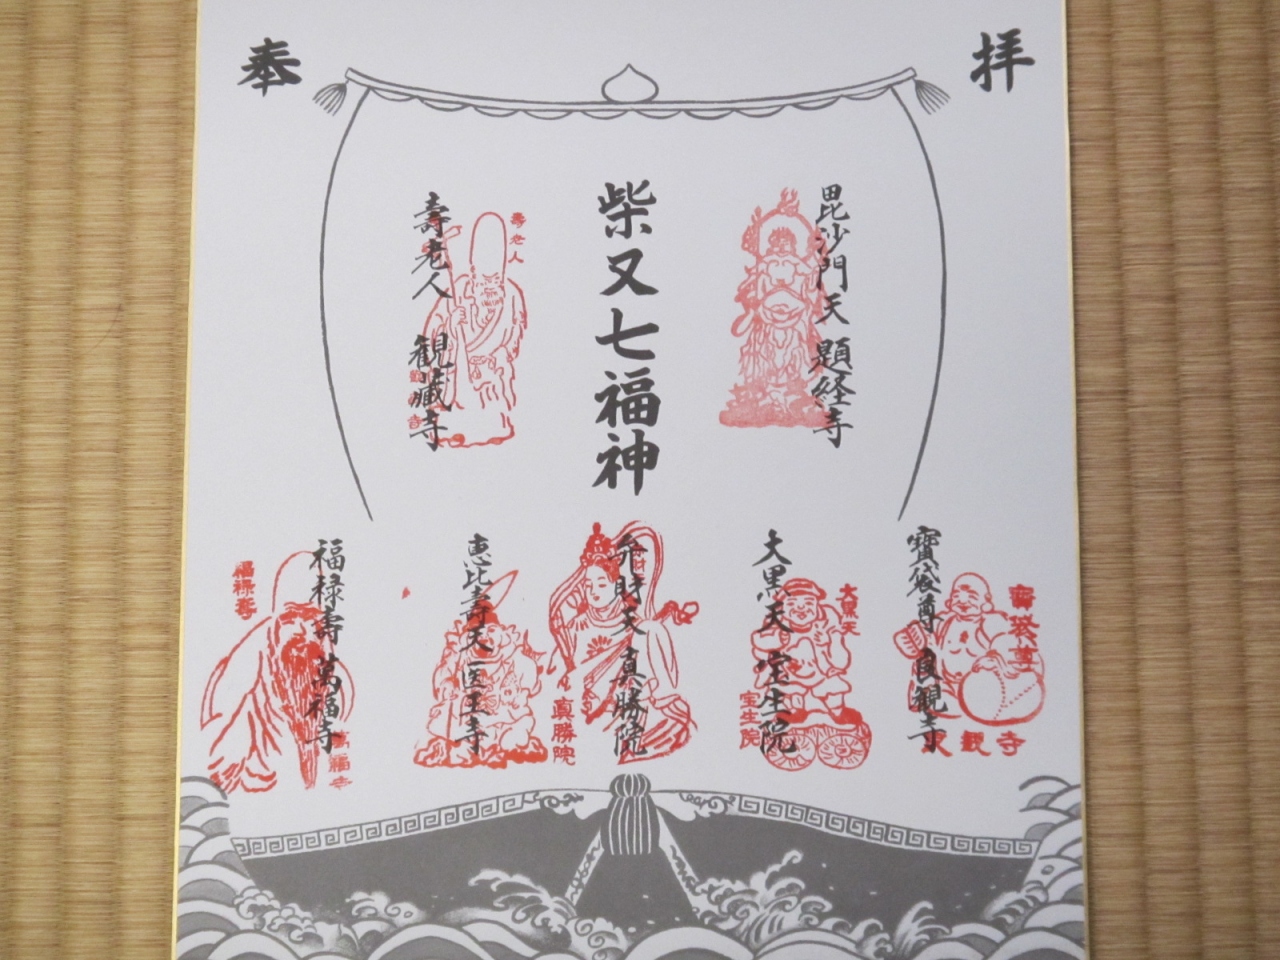 奉
拝
柴又七福神
毘沙門天 題経寺
壽老人 観蔵寺
壽老人
寳袋尊 良観寺
寳袋尊
良観寺
大黒天 宝生院
大黒天
宝生院
弁財天 真勝院
真勝院
恵比壽天 医王寺
福禄壽 萬福寺
福禄壽
萬福寺